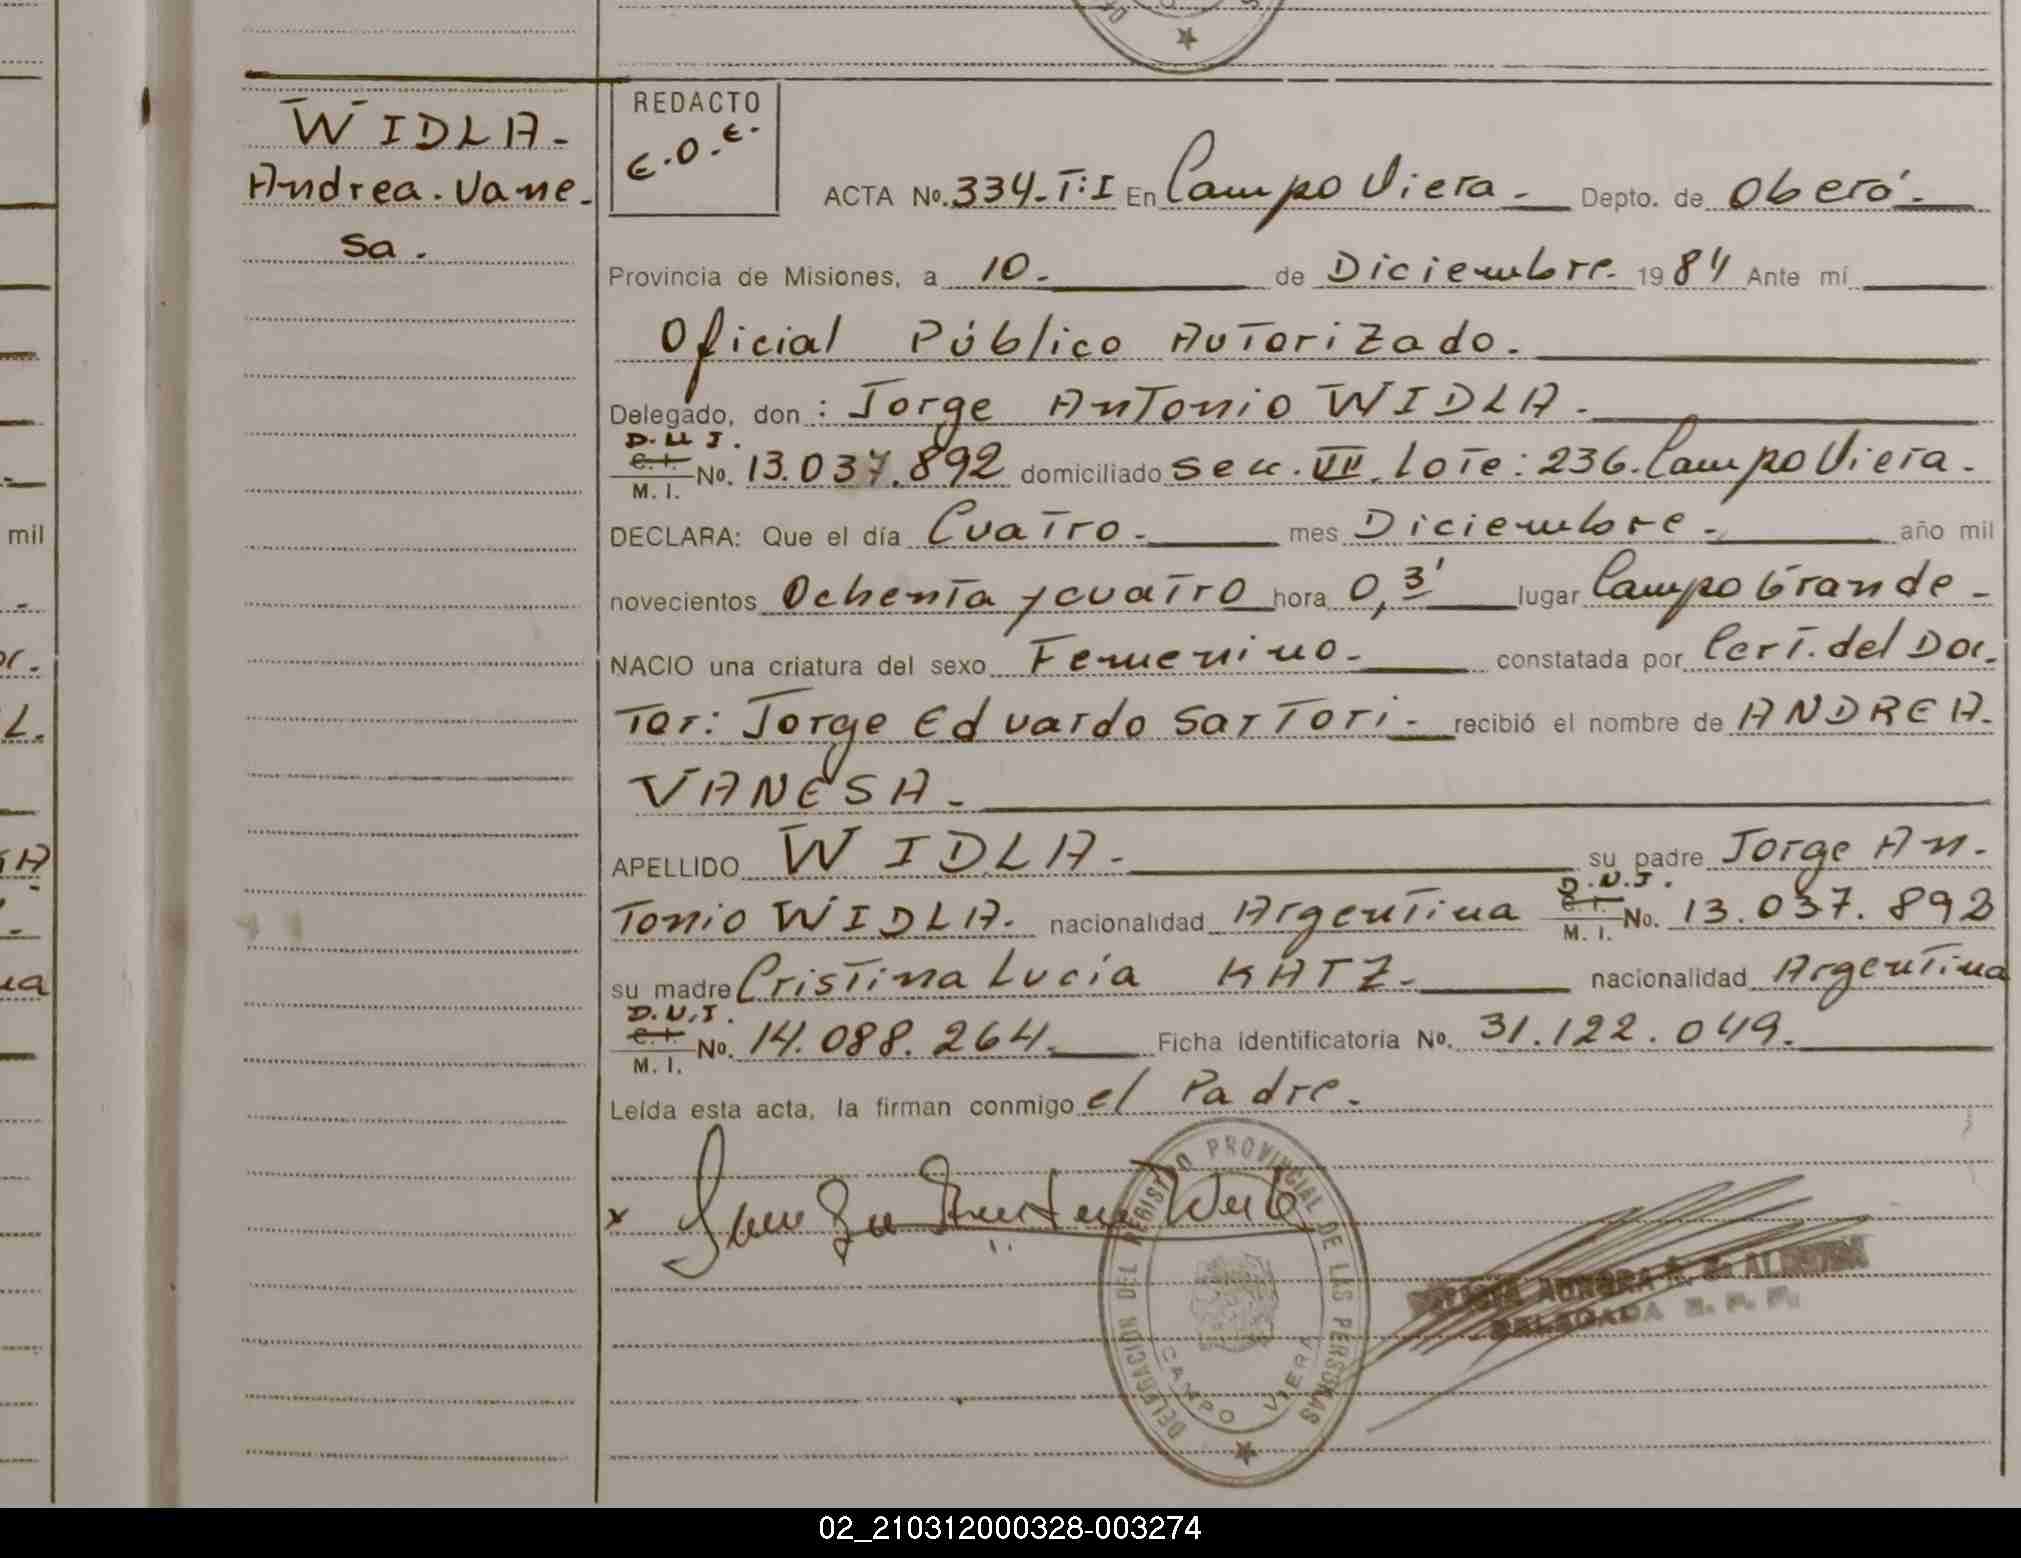 WIDLA-
Andrea.Vane-
sa.
REDACTO
E.O.E.
ACTA No. 334-T:I En Campo Viera - Depto. de Oberá.
Provincia de Misiones, a 10. de Diciembre. 1984 Ante mí
Oficial Público Autorizado.
Delegado, don: Jorge Antonio WIDLA.
D.N.I.
C.I.
M.I. No. 13.037.892 domiciliado secc. VII Lote: 236. Campo Viera.
DECLARA: Que el día Cuatro. mes Diciembre. año mil
novecientos Ochenta y cuatro hora 0,3' lugar Campo Grande -
NACIO una criatura del sexo Femenino. constatada por Cert. del Doc-
tor: Jorge Eduardo Sartori. recibió el nombre de ANDREA.
VANESA.
APELLIDO WIDLA. su padre Jorge An-
tonio WIDLA. nacionalidad Argentina
D.N.I.
C.I.
M.I. No. 13.037.892
su madre Cristina Lucía KATZ. nacionalidad Argentina
D.N.I.
C.I.
M.I. No. 14.088.264. Ficha identificatoria No. 31.122.049.
Leída esta acta, la firman conmigo el Padre.
x
DELEGACION DEL REGISTRO PROVINCIAL DE LAS PERSONAS
CAMPO VIERA
AURORA
DELEGADA
mil
02_210312000328-003274